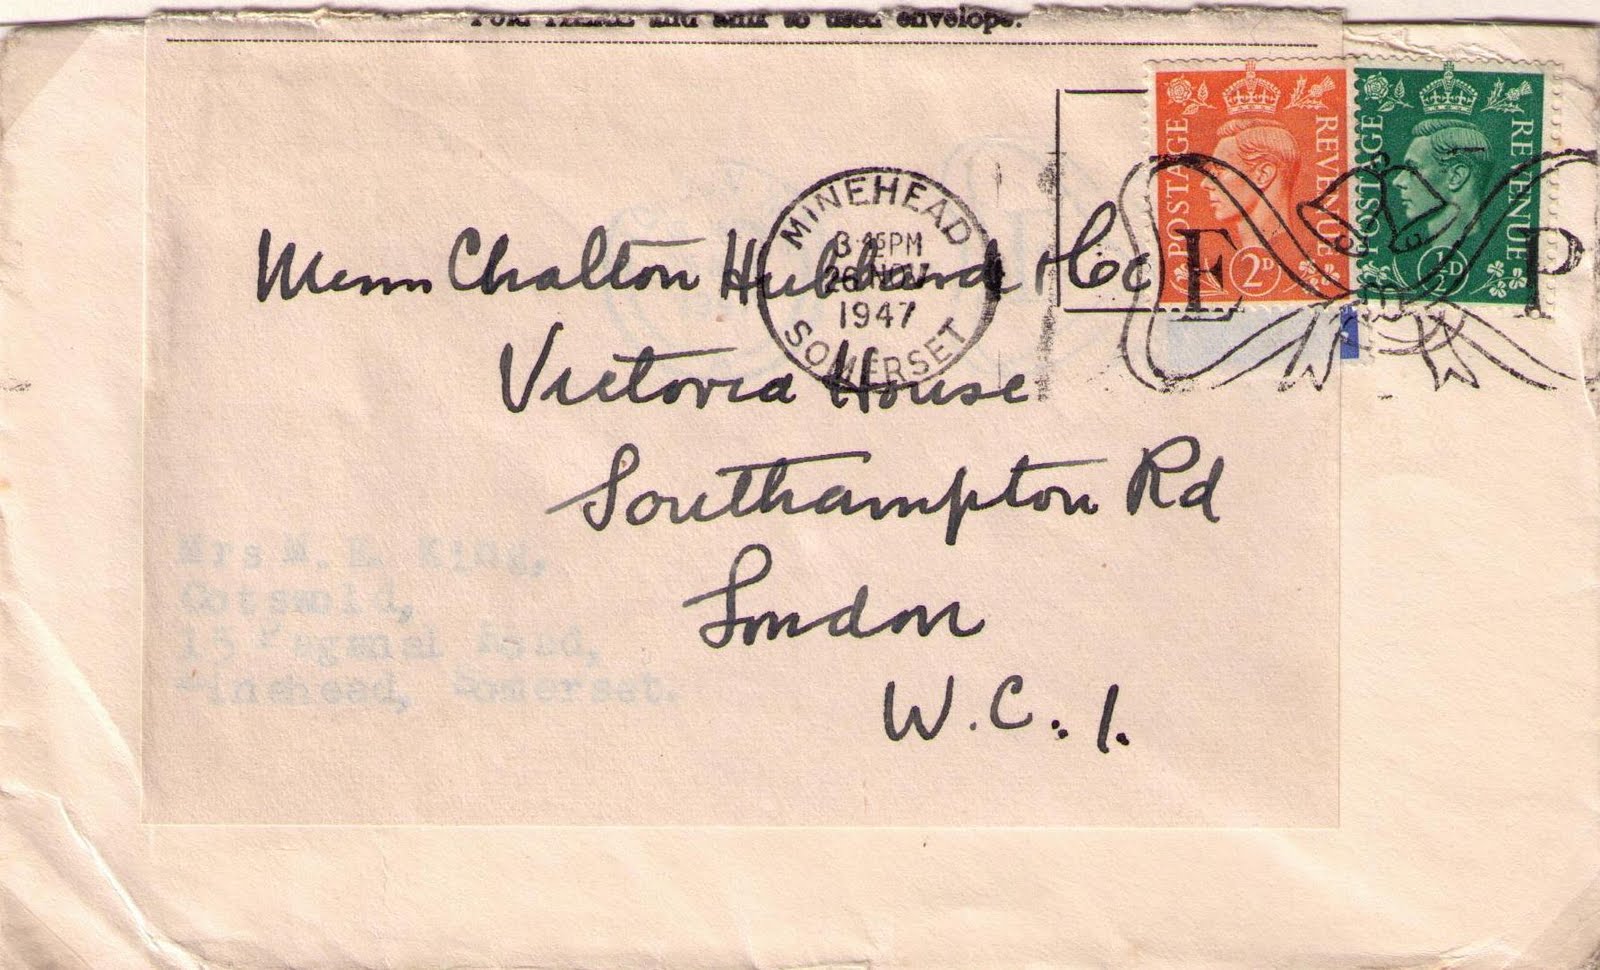 Fold HERE and affix to used envelope.
MINEHEAD
3 45 PM
26 NOV
1947
SOMERSET
POSTAGE REVENUE
2D
POSTAGE REVENUE
½D
E P
Messrs Chalton Hubbard & Co
Victoria House
Southampton Rd
London
W.C.1.
Mrs M. E. King,
Cotswold,
15 Road,
Minehead, Somerset.